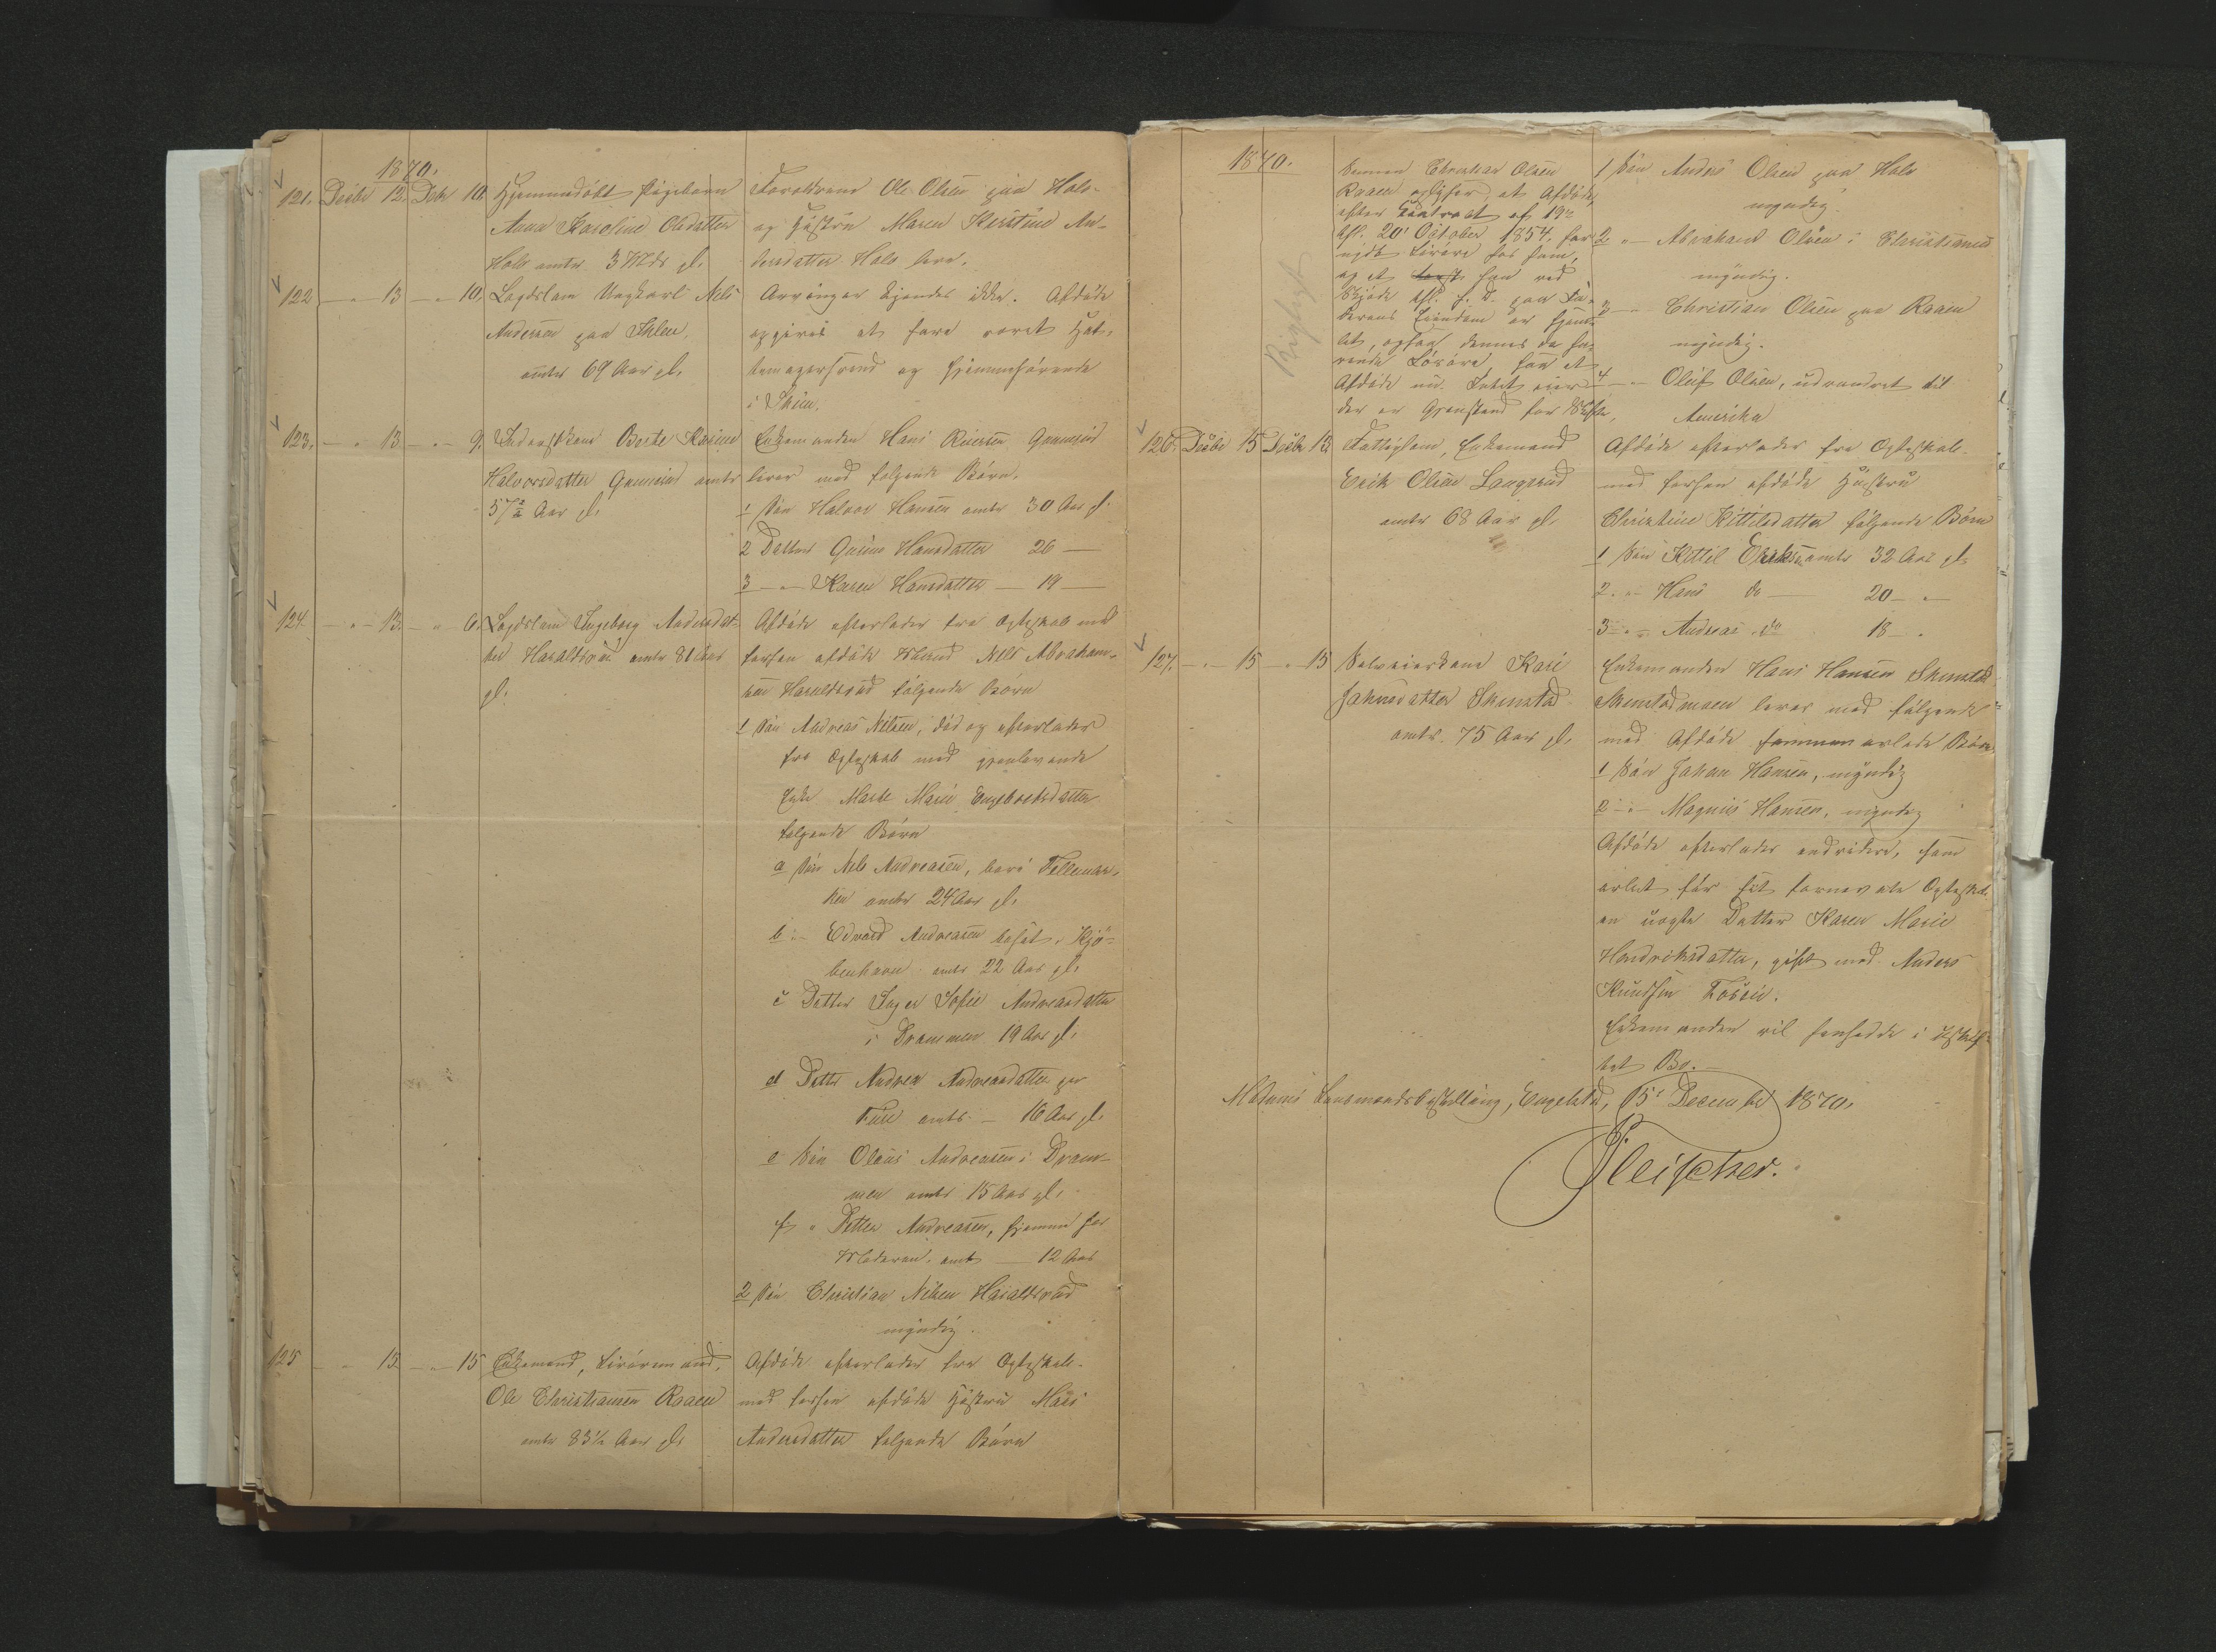 1870.
121. Decbr 12. Dcbr 10. Hjemmedöbt Pigebarn
Anna Karoline Olsdatter
Holo omtr 3 Mdr gl.
Forældrene Ole Olsen paa Holo
og Hustru Maren Kirstine An-
dersdatter Holo leve.
122 - " 13 - " 10. Lægdslem Ungkarl Nels
Andersen paa
omtr 69 Aar gl.
Arvinger kjendes ikke. Afdöde
opgives at have været Hat-
temagersvend og hjemmehörende
i Skien.
123. - " 13 - " 9. Berte Karine
Halvorsdatter omtr
57½ Aar gl.
Enkemanden Hans
lever med fölgende Börn.
1 Sön Halvor Hansen omtr 30 Aar gl.
2 Datter Gurine Hansdatter 26 —
3 - " - Karen Hansdatter — 19 —
124. - " - 13. - " 6. Lægdslem Ingeborg Andersdat-
ter Haraldsrud omtr 81 Aar
gl.
Afdöde efterlader fra Ægteskab med
forhen afdöde Mand Nels Abraham-
sen Haraldsrud fölgende Börn
1 Sön Andreas Nelsen, död og efterlader
fra Ægteskab med gjenlevende
Enke Marte Marie Engebretsdatter
fölgende Börn
a Sön Nels Andreasen, bor i Tellemar-
ken omtr 24 Aar gl.
b " - Edvard Andreasen bosat i Kjö-
benhavn omtr 22 Aar gl.
c Datter Inger Sofie Andreasdatter
i Drammen 19 Aar gl.
d Datter Andrea Andreasdatter paa
omtr — 16 Aar gl.
e Sön Olaus Andreasen i Dram-
men omtr 15 Aar gl.
f " Petter Andreasen, hjemme hos
Moderen, omtr — 12 Aar
2 Sön Christian Nelsen Haraldsrud
myndig.
125 - " 15 - " 15 Enkemand, Livöremand,
Ole Christiansen Raaen
omtr 83½ Aar gl.
Afdöde efterlader fra Ægteskab
med forhen afdöde Hustru Mari
Andersdatter fölgende Börn
1870.
Rigtigt
Sönnen Christian Olsen
Raaen oplyser, at Afdöde,
efter Contract af 19de
thl. 20' October 1854, har
nydt Livöre hos ham,
og at han ved
Skjöde thl. s. D. paa Fa-
derens Eiendom er hjem-
let,
Livöre, saa at
Afdöde nu Intet eier
der er Gjenstand for Skifte.
1 Sön Anders Olsen paa Holo
myndig.
2 " - Abraham Olsen i Christiania
myndig.
3 - " - Christian Olsen paa Raaen
myndig.
4 - " - Oluf Olsen, udvandret til
Amerika
126. Decbr 15 Decbr 13. Fattiglem, Enkemand
Erik Olsen Langerud
omtr 68 Aar gl.
Afdöde efterlader fra Ægteskab
med forhen afdöde Hustru
Christine Kittilsdatter fölgende Börn
1 Sön Kittil Eriksen omtr 32 Aar gl.
2. " - Hans do — 20 — "
3 - " - Andreas do 18 — "
127. - " - 15 - " 15 Selveierkone Kari
Johnsdatter Skinstad
omtr. 75 Aar gl.
Enkemanden Hans Hansen Skinstad
Skinstadmoen lever med fölgende
med Afdöde sammenavlede Börn.
1 Sön Johan Hansen, myndig
2 - " - Magnus Hansen, myndig
Afdöde efterlader endvidere, som
avlet för sit Ægteskab
en uægte Datter Karen Marie
Hendriksdatter, gift med Anders
Knudsen
Enkemanden vil hensidde i uskif-
tet Bo.
Modums Lensmandsbestilling, Engelstad, 15' December 1870.
Fleischer.